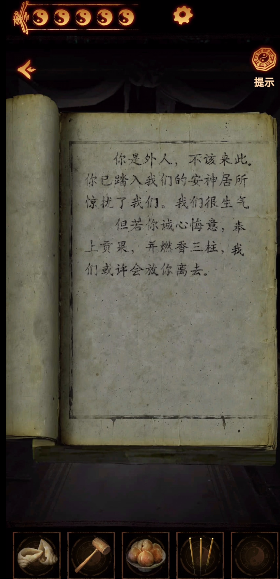 提示
你是外人，不该来此。
你已踏入我们的安神居所
惊扰了我们。我们很生气
但若你诚心悔意，奉
上贡果，并燃香三柱，我
们或许会放你离去。